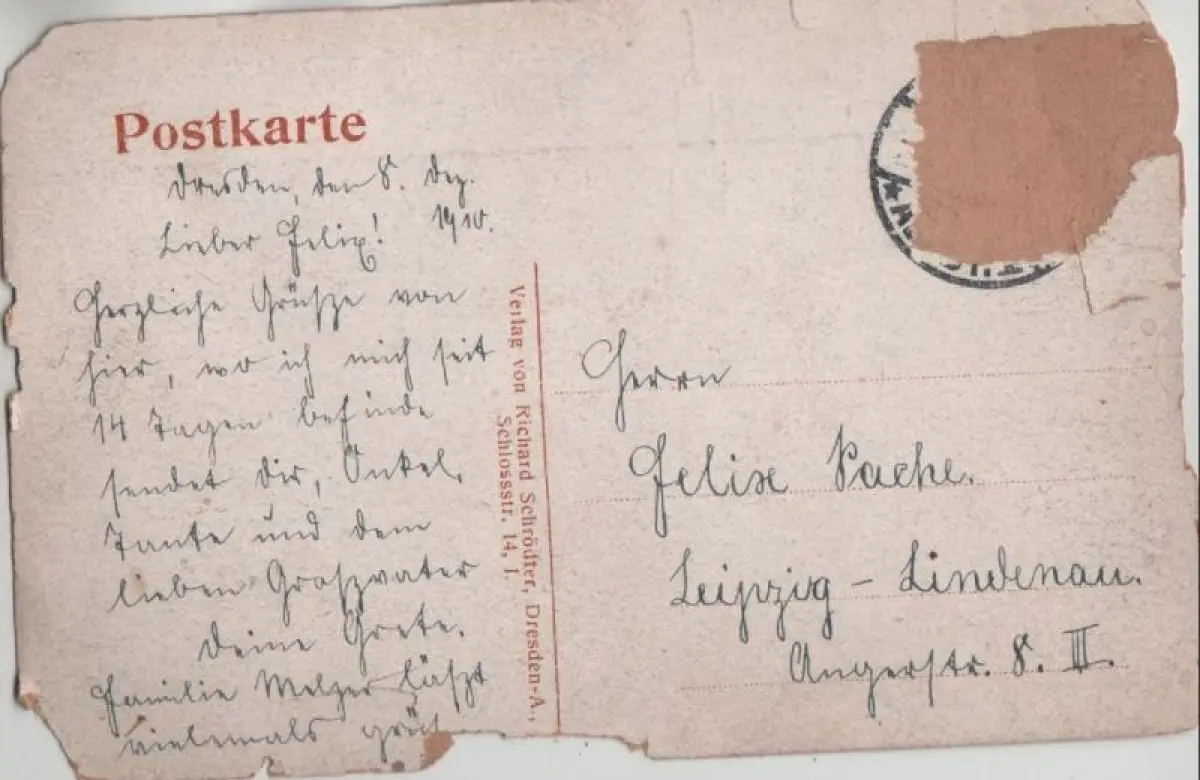 Postkarte
Dresden, den 8. Dez.
1910.
Lieber Felix!
Herzliche Grüsze von
hier, wo ich mich seit
14 Tagen befinde
sendet dir, Onkel,
Tante und dem
lieben Groszvater
Deine Grete.
Familie Melzer läszt
vielemals
Verlag von Richard Schrödter, Dresden-A.,
Schlossstr. 14, I.
Herrn
Felix Pache.
Leipzig - Lindenau.
Angerstr. 8. III.